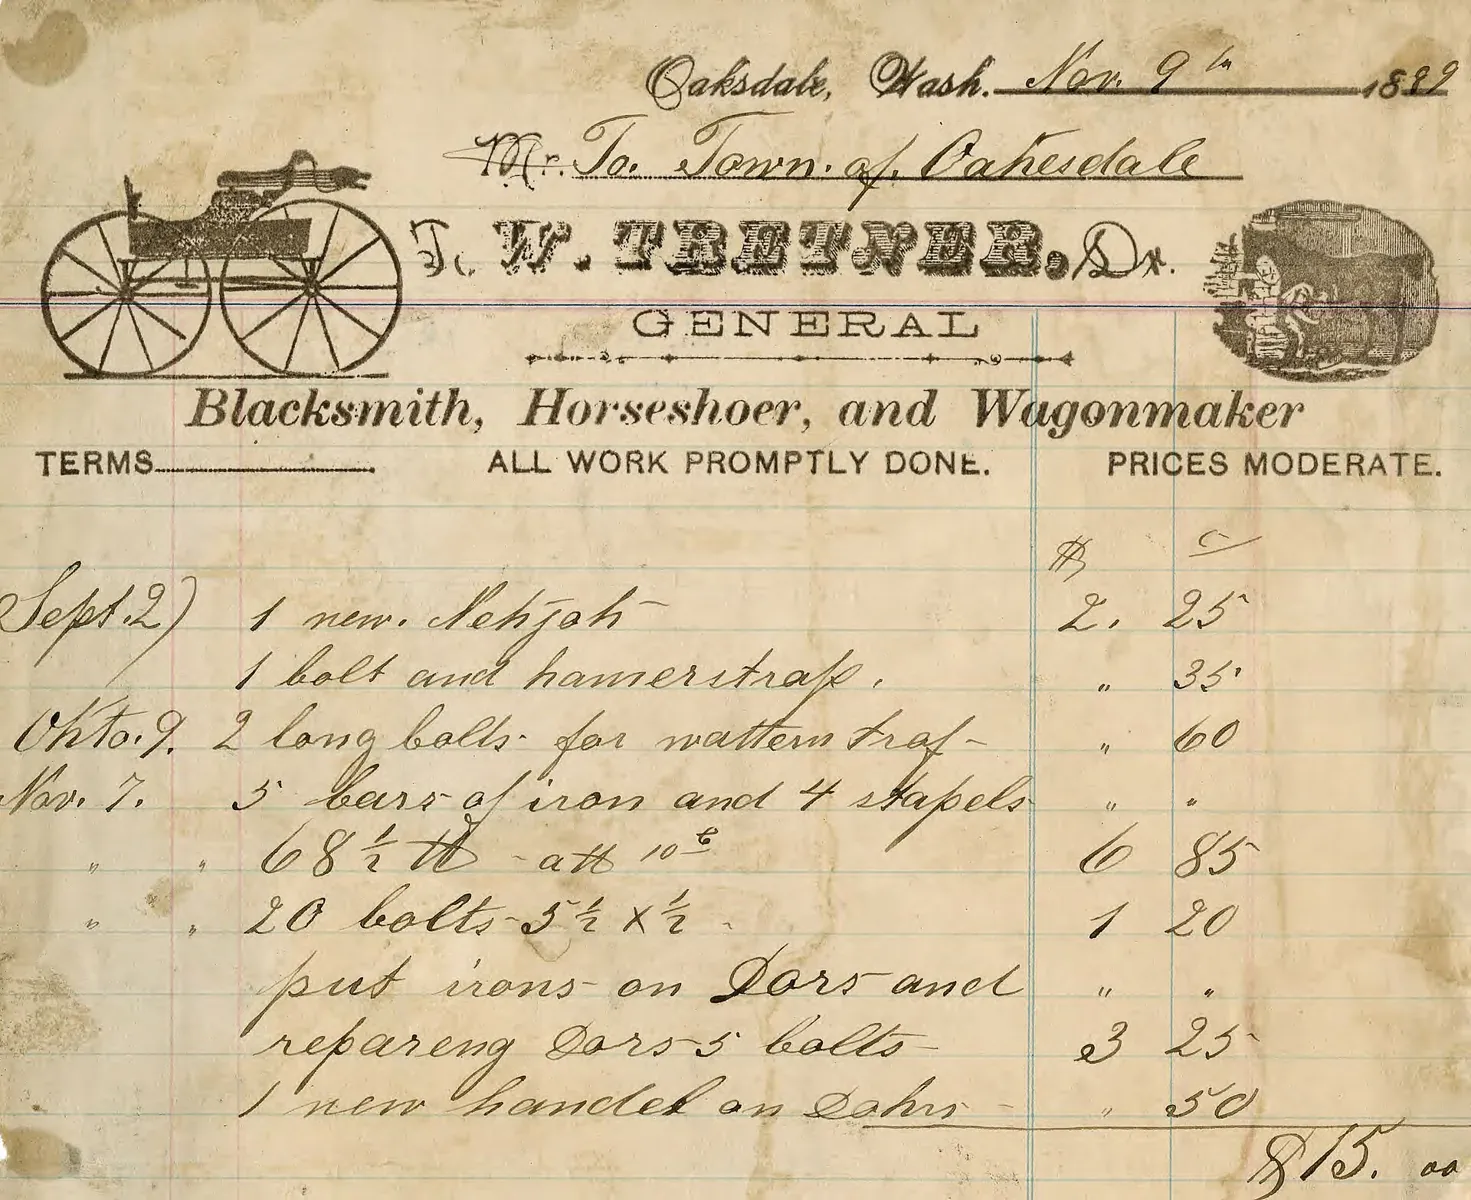 Oaksdale, Wash. Nov. 9th 1889
Mr. To. Town. of. Oakesdale
T. W. TRETNER, Dr.
GENERAL
Blacksmith, Horseshoer, and Wagonmaker
TERMS ALL WORK PROMPTLY DONE. PRICES MODERATE.
$ c
Sept. 2) 1 new. 2. 25
1 bolt and hamerstrap. " 35
Okto. 9. 2 long bolts for " 60
Nov. 7. 5 bars of iron and 4 stapels " "
" " 68 1/2 ℔ - att 10c 6 85
" " 20 bolts 5 1/2 x 1/2 - 1 20
put irons on Dors and " "
repareng Dors 5 bolts 3 25
1 new handel on Dohrs - " 50
$15. 00